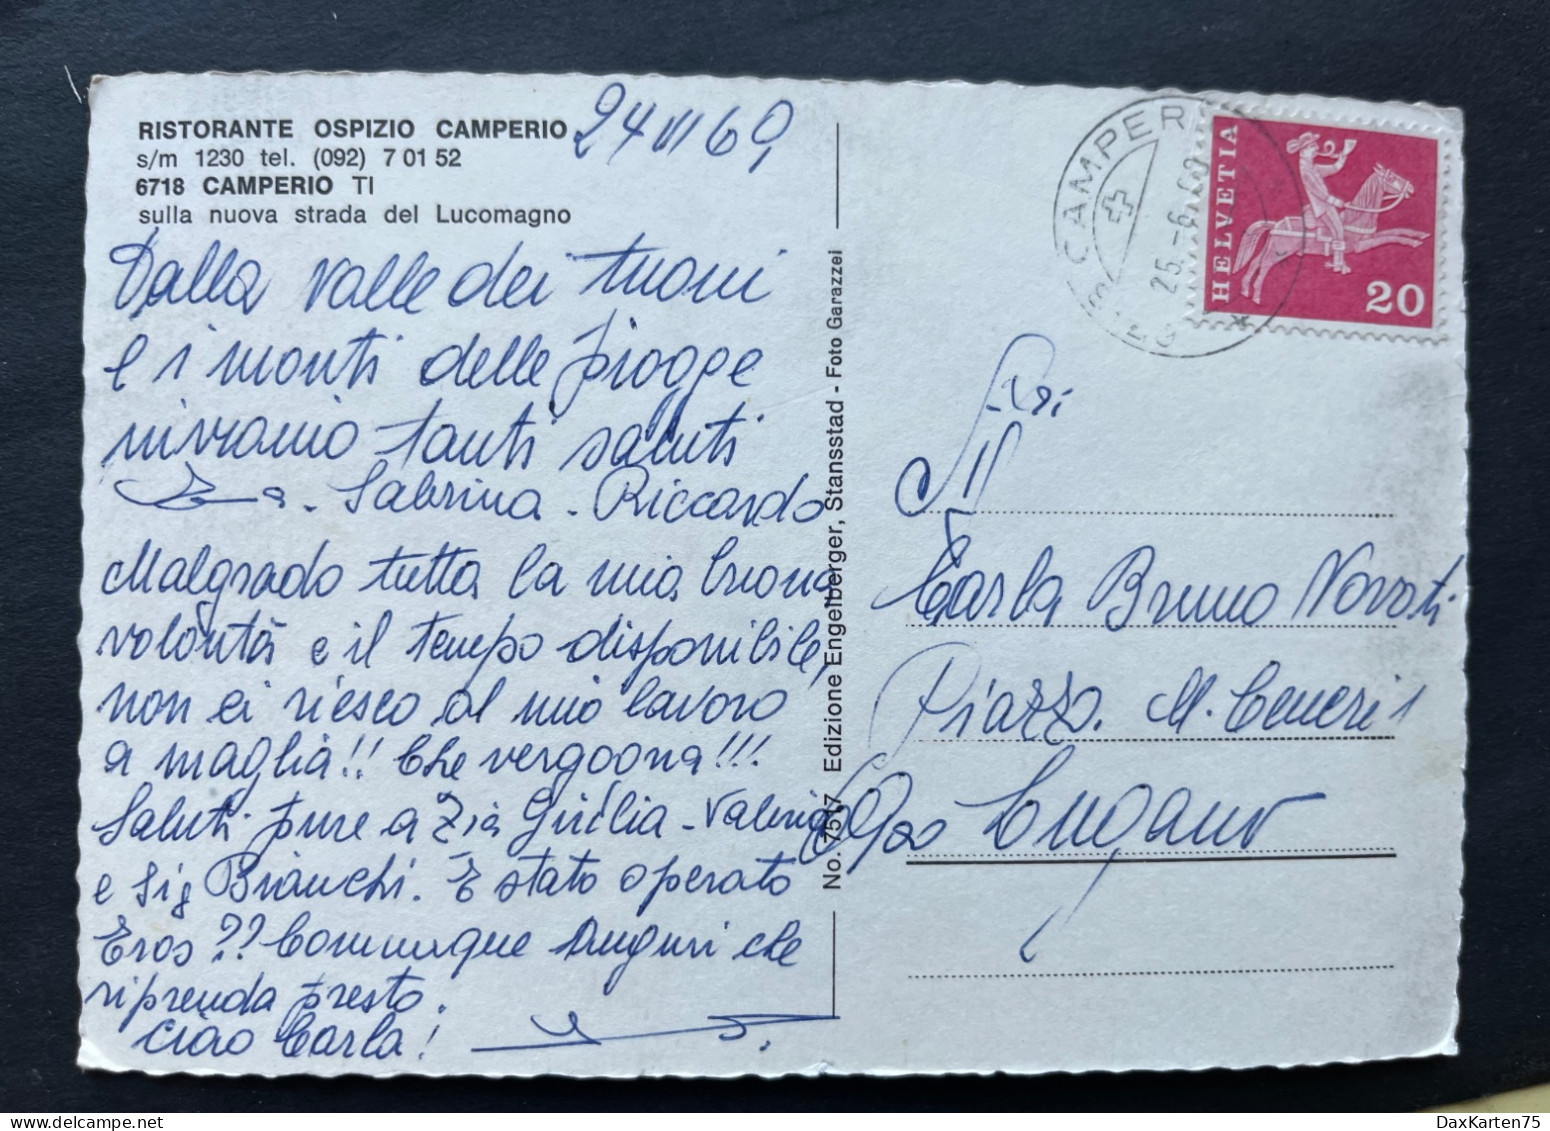 RISTORANTE OSPIZIO CAMPERIO
s/m 1230 tel. (092) 7 01 52
6718 CAMPERIO TI
sulla nuova strada del Lucomagno
24 VI 69
Dalla valle dei tuoni
e i monti delle piogge
inviamo tanti saluti
Sabrina - Riccardo
Malgrado tutta la mia buona
volontà e il tempo disponibile,
non ci riesco al mio lavoro
a maglia!! Che vergogna!!!
Saluti pure a Zia Giulia - Valeria
e Sig Bianchi. È stato operato
Eros?? Comunque auguri che
riprenda presto.
Ciao Carla!
No. 7517 Edizione Engelberger, Stansstad - Foto Garazzei
CAMPERIO
25.-6.69
HELVETIA
20
Carla Bruno Novati
Piazza M. Ceneri 1
6900 Lugano
DaxKarten75